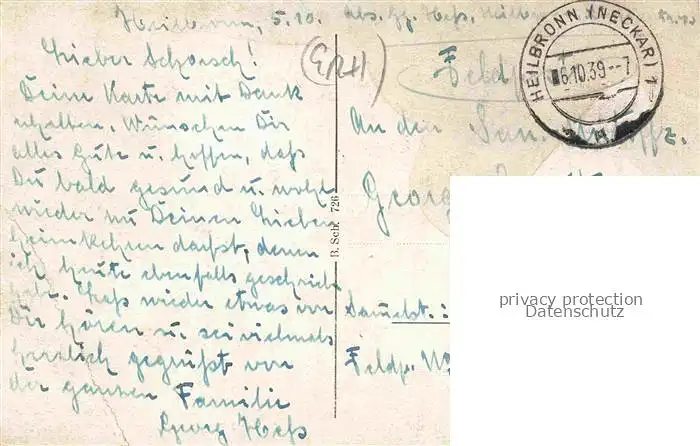 Heilbronn, 5.10. Abs. Gg. Heß, Heilbronn
Lieber Schorsch!
Deine Karte mit Dank
erhalten. Wünschen Dir
alles Gute u. hoffen, daß
Du bald gesund u. wohl
wieder zu Deinen Lieben
heimkehren darfst, denen
ich heute ebenfalls geschrieb.
habe. Laß wieder etwas von
Dir hören u. sei vielmals
herzlich gegrüßt von
der ganzen Familie
Georg Heß
B. Sch. 726
Feldpost
HEILBRONN (NECKAR) 1
6.10.39--7
An den San.
Georg
Sammelst.:
Feldp. No
privacy protection
Datenschutz